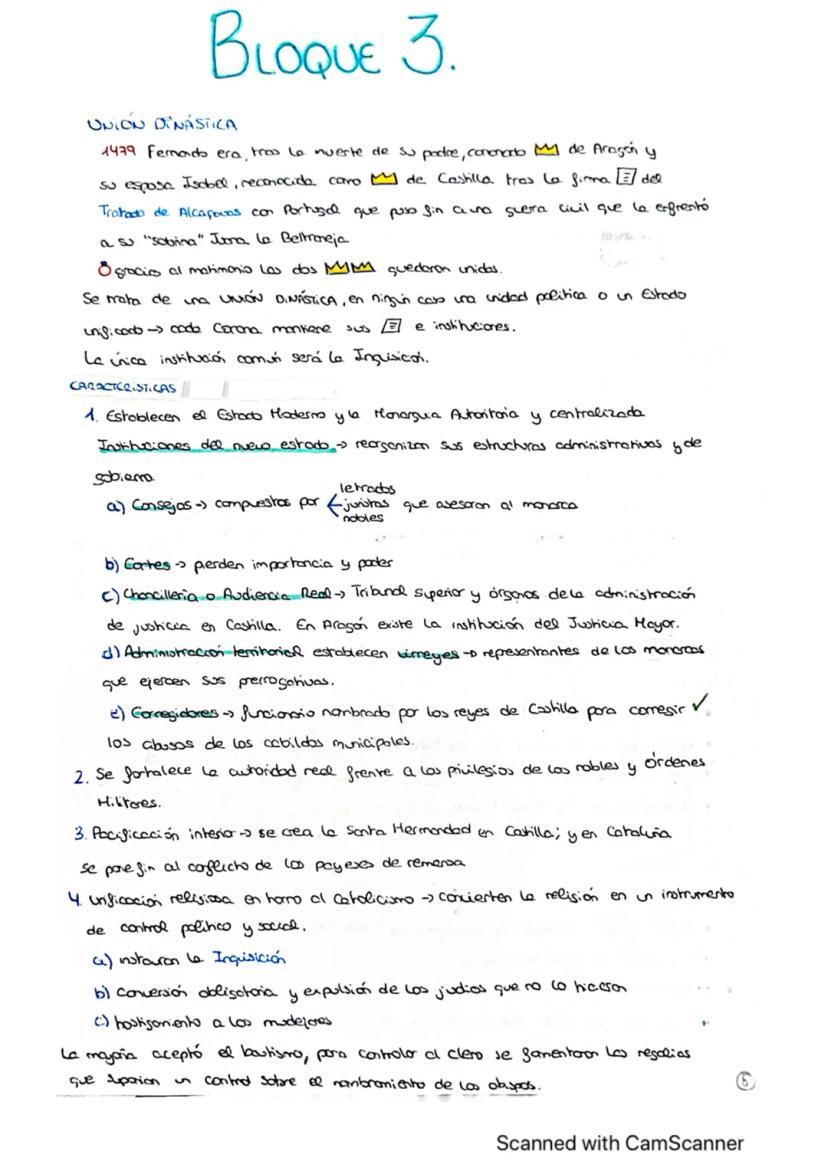 BLOQUE 3.
UNIÓN DINÁSTICA
1479 Fernando era, tras la muerte de su padre, coronado de Aragón y
su esposa Isabel, reconocida como de Castilla tras la firma del
Tratado de Alcaçovas con Portugal que puso fin a una guerra civil que la enfrentó
a su "sobrina" Juana la Beltraneja
gracias al matrimonio las dos quedaron unidas.
Se trata de una UNIÓN DINÁSTICA, en ningún caso una unidad política o un Estado
unificado → cada Corona mantiene sus e instituciones.
La única institución común será la Inquisición.
CARACTERÍSTICAS
1. Establecen el Estado Moderno y la Monarquía Autoritaria y centralizada
Instituciones del nuevo estado → reorganizan sus estructuras administrativas y de
gobierno.
letrados
a) Consejos → compuestos por juristas que asesoran al monarca
nobles
b) Cortes → pierden importancia y poder
c) Chancillería o Audiencia Real → Tribunal superior y órganos de la administración
de justicia en Castilla. En Aragón existe la institución del Justicia Mayor.
d) Administración territorial establecen virreyes → representantes de los monarcas
que ejercen sus prerrogativas.
e) Corregidores → funcionario nombrado por los reyes de Castilla para corregir ✓
los abusos de los cabildos municipales.
2. Se fortalece la autoridad real frente a los privilegios de los nobles y órdenes
Militares.
3. Pacificación interior → se crea la Santa Hermandad en Castilla; y en Cataluña
se pone fin al conflicto de los payeses de remensa
4. Unificación religiosa en torno al Catolicismo → convierten la religión en un instrumento
de control político y social.
a) instauran la Inquisición
b) Conversión obligatoria y expulsión de los judíos que no lo hicieron
c) hostigamiento a los mudéjares
La mayoría aceptó el bautismo, para controlar al clero se fomentaron las regalías
que suponían un control sobre el nombramiento de los obispos.
5
Scanned with CamScanner